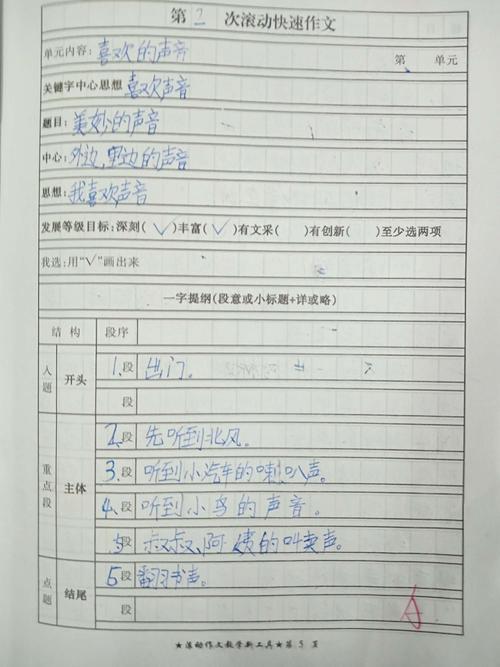 第2次滚动快速作文
单元内容:喜欢的声音 第 单元
关键字中心思想 喜欢声音
题目:美妙的声音
中心:外边,里边的声音
思想:我喜欢声音
发展等级目标:深刻(✓)丰富(✓)有文采( )有创新( )至少选两项
我选:用“√”画出来
一字提纲(段意或小标题+详或略)
结构 段序
入题 开头 1、段 出门。
段
重点段 主体 2、段 先听到北风。
3、段 听到小汽车的喇叭声。
4、段 听到小鸟的声音。
5段 叔叔、阿姨的叫卖声。
点题 结尾 5段 翻书声。
段
★滚动作文教学新工具★第5页